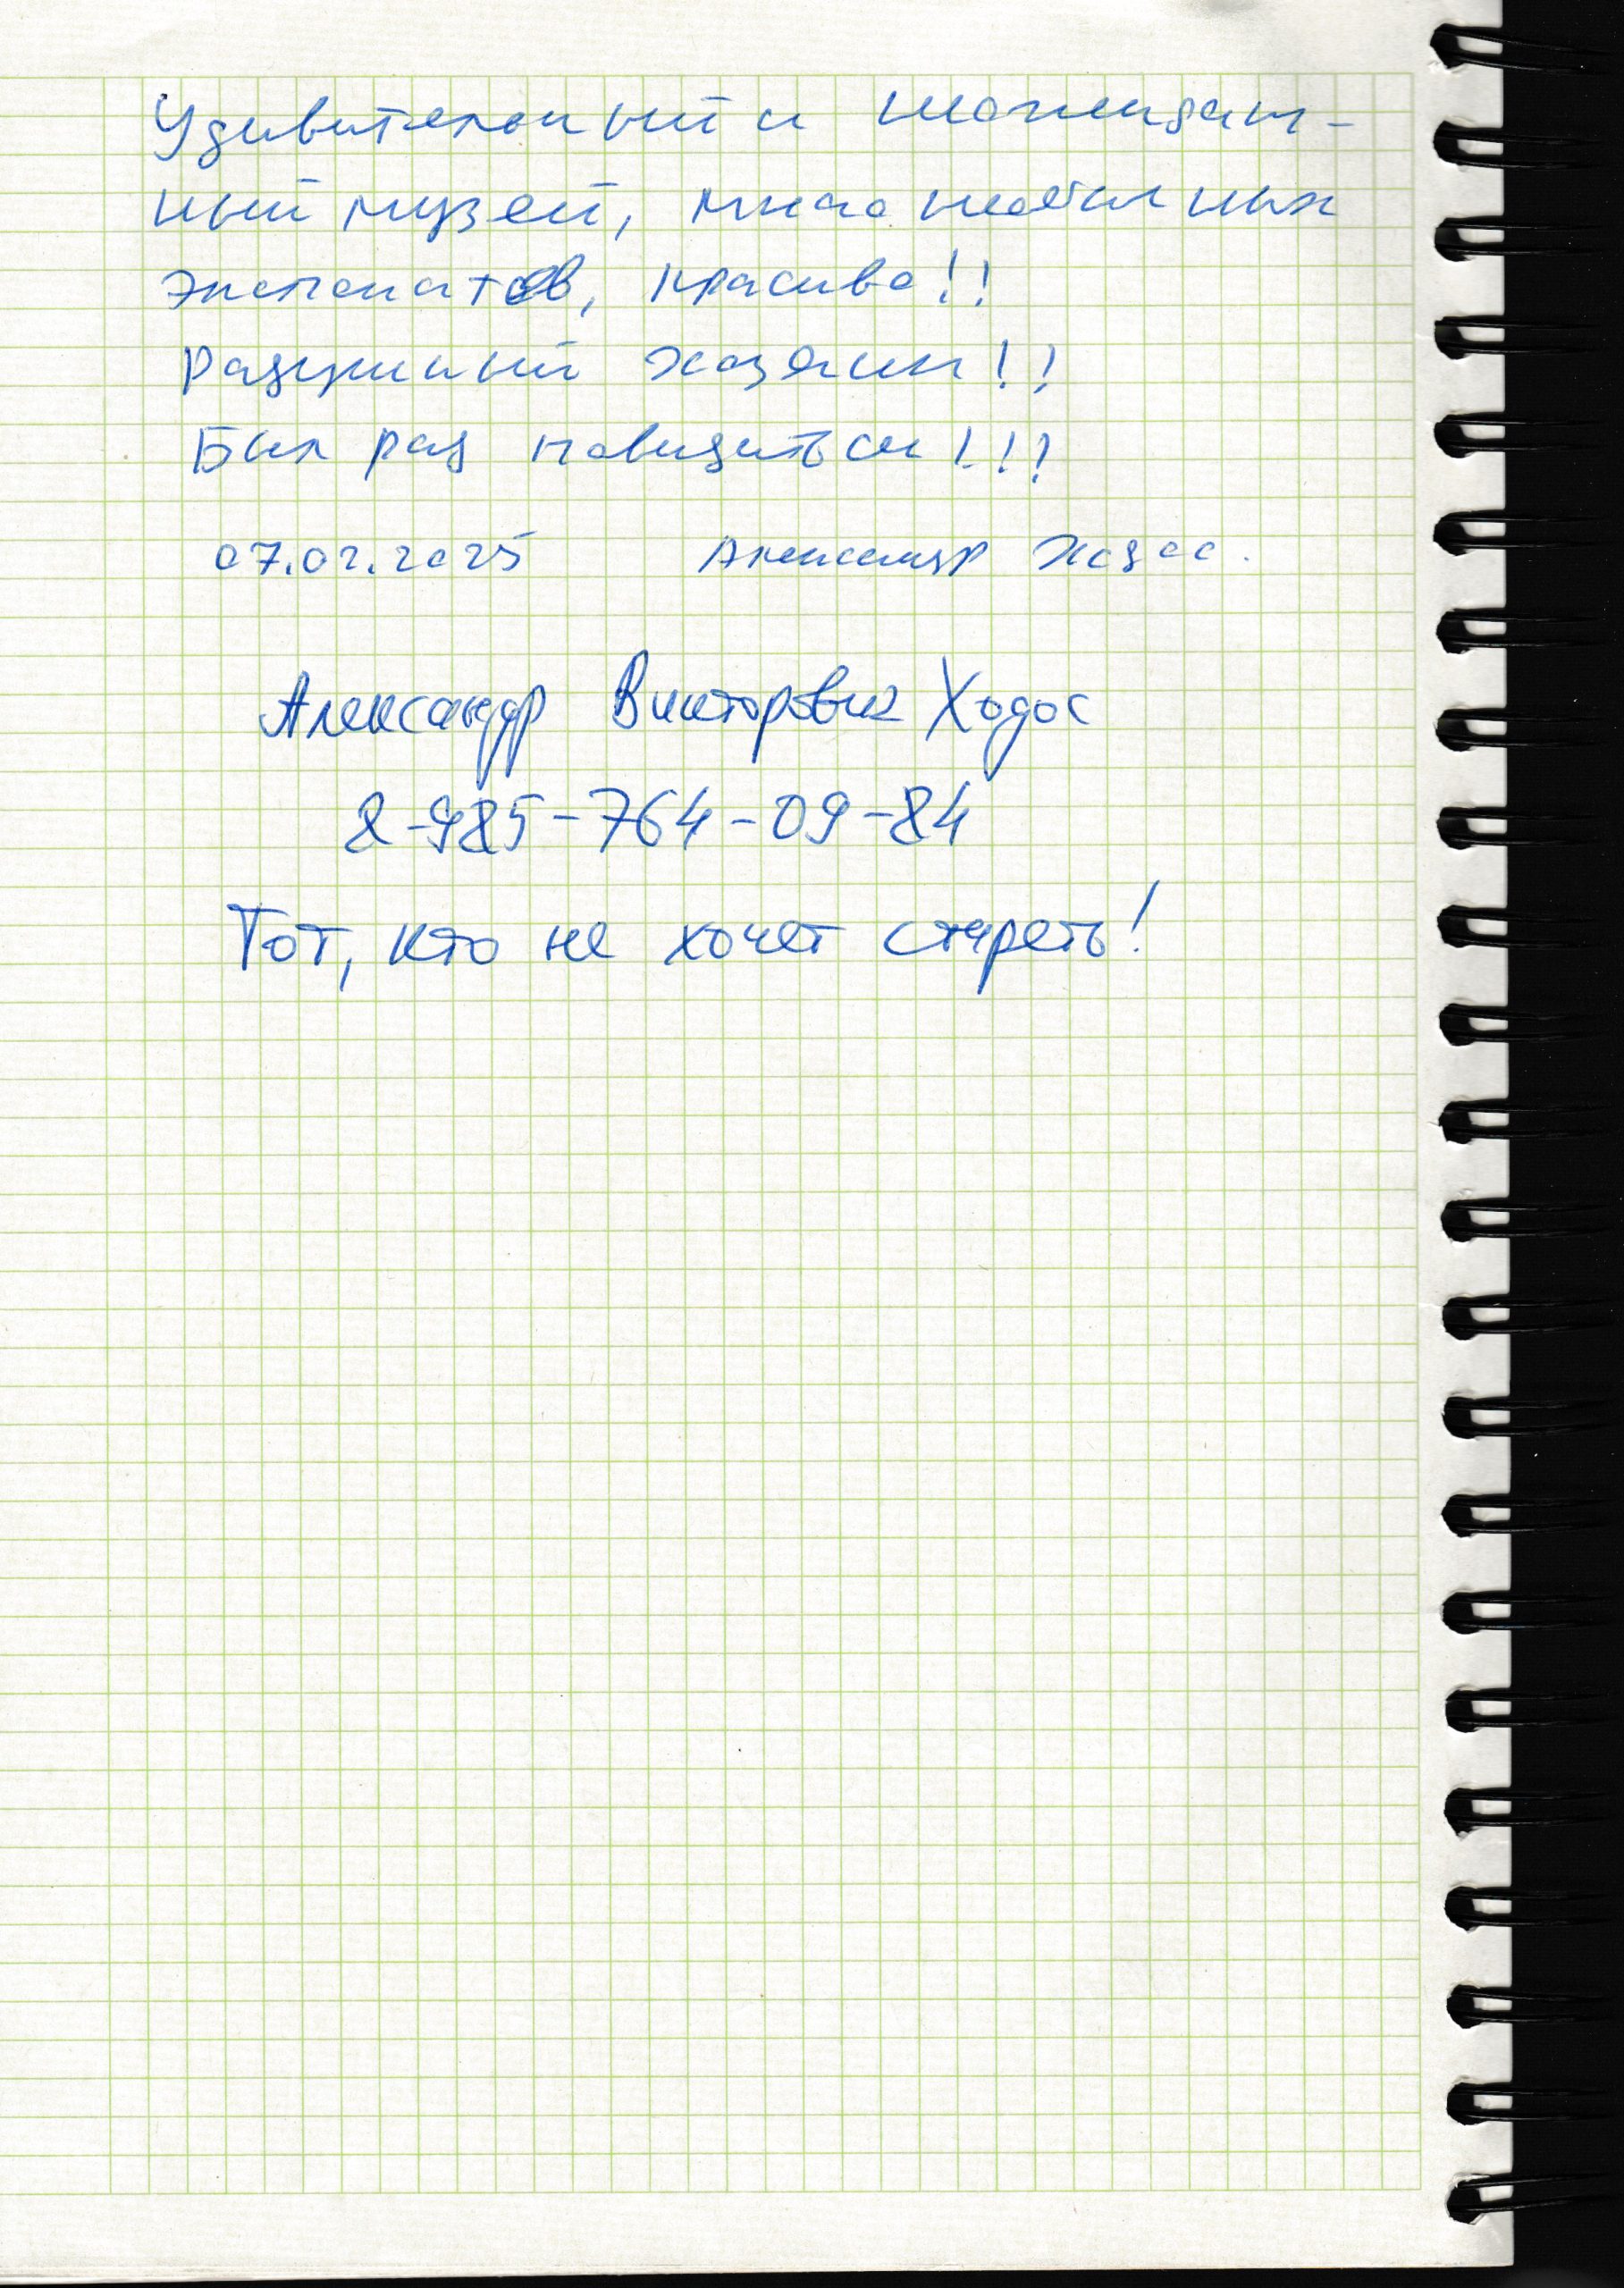 Удивительный и шоки
ный музей, много необычных
экспонатов, красиво!!
Радушный хозяин!!
Был рад повидаться!!!
07.02.2025 Александр Ходос.
Александр Викторович Ходос
8-985-764-09-84
Тот, кто не хочет стареть!